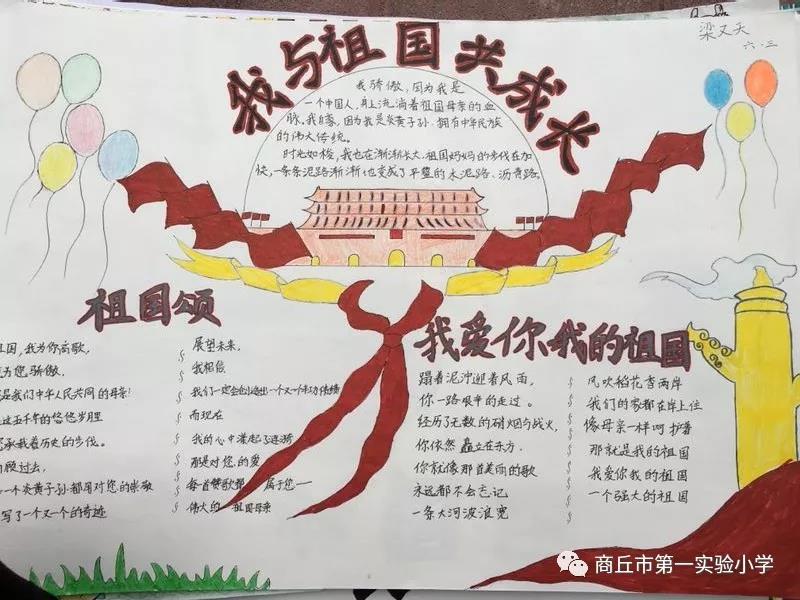 梁又天
六.三
我与祖国共成长
我骄傲,因为我是
一个中国人,身上流淌着祖国母亲的血
脉。我自豪,因为我是炎黄子孙,拥有中华民族
的伟大传统。
时光如梭,我也在渐渐长大,祖国妈妈的步伐在加
快,一条条泥路渐渐也变成了平整的水泥路、沥青路。
祖国颂
国,我为你高歌,
为您骄傲,
是我们中华人民共同的母亲!
这五千年的悠悠岁月里
承载着历史的步伐。
顾过去,
一个炎黄子孙都用对您的崇敬
写了一个又一个的奇迹
展望未来,
我相信
我们一定会创造出一个又一个
而现在
我的心中荡起了涟漪
那是对您的爱
每首赞歌都 属于您一
伟大的 祖国母亲
我爱你我的祖国
踏着泥泞迎着风雨,
你一路艰辛的走过。
经历了无数的硝烟与战火,
你依然矗立在东方.
你就像那首美丽的歌
永远都不会忘记
一条大河波浪宽
风吹稻花香两岸
我们的家都在岸上住
像母亲一样呵护着
那就是我的祖国
我爱你我的祖国
一个强大的祖国
商丘市第一实验小学